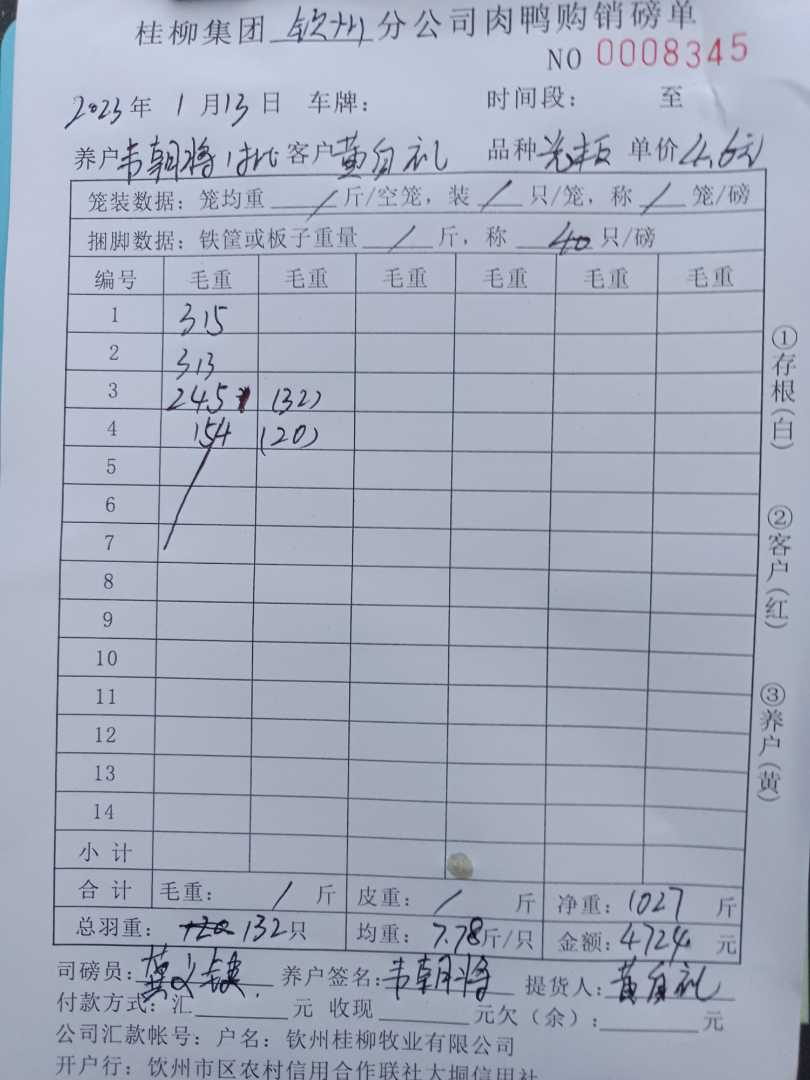 桂柳集团 钦州 分公司肉鸭购销磅单
NO 0008345
2023年 1月13日 车牌： 时间段： 至
养户 韦朝将 1批 客户 黄自礼 品种 单价 4.6元
笼装数据：笼均重 / 斤/空笼，装 / 只/笼，称 / 笼/磅
捆脚数据：铁筐或板子重量 / 斤，称 40 只/磅
编号 毛重 毛重 毛重 毛重 毛重 毛重
1 315
2 313
3 245 (32)
4 154 (20)
5
6
7
8
9
10
11
12
13
14
小计
合计 毛重： / 斤 皮重： / 斤 净重：1027 斤
总羽重：132只 均重：7.78斤/只 金额：4724 元
司磅员： 养户签名：韦朝将 提货人：黄自礼
付款方式：汇 元 收现 元欠（余）： 元
公司汇款帐号：户名：钦州桂柳牧业有限公司
开户行：钦州市区农村信用合作联社大垌信用社
①存根（白）
②客户（红）
③养户（黄）